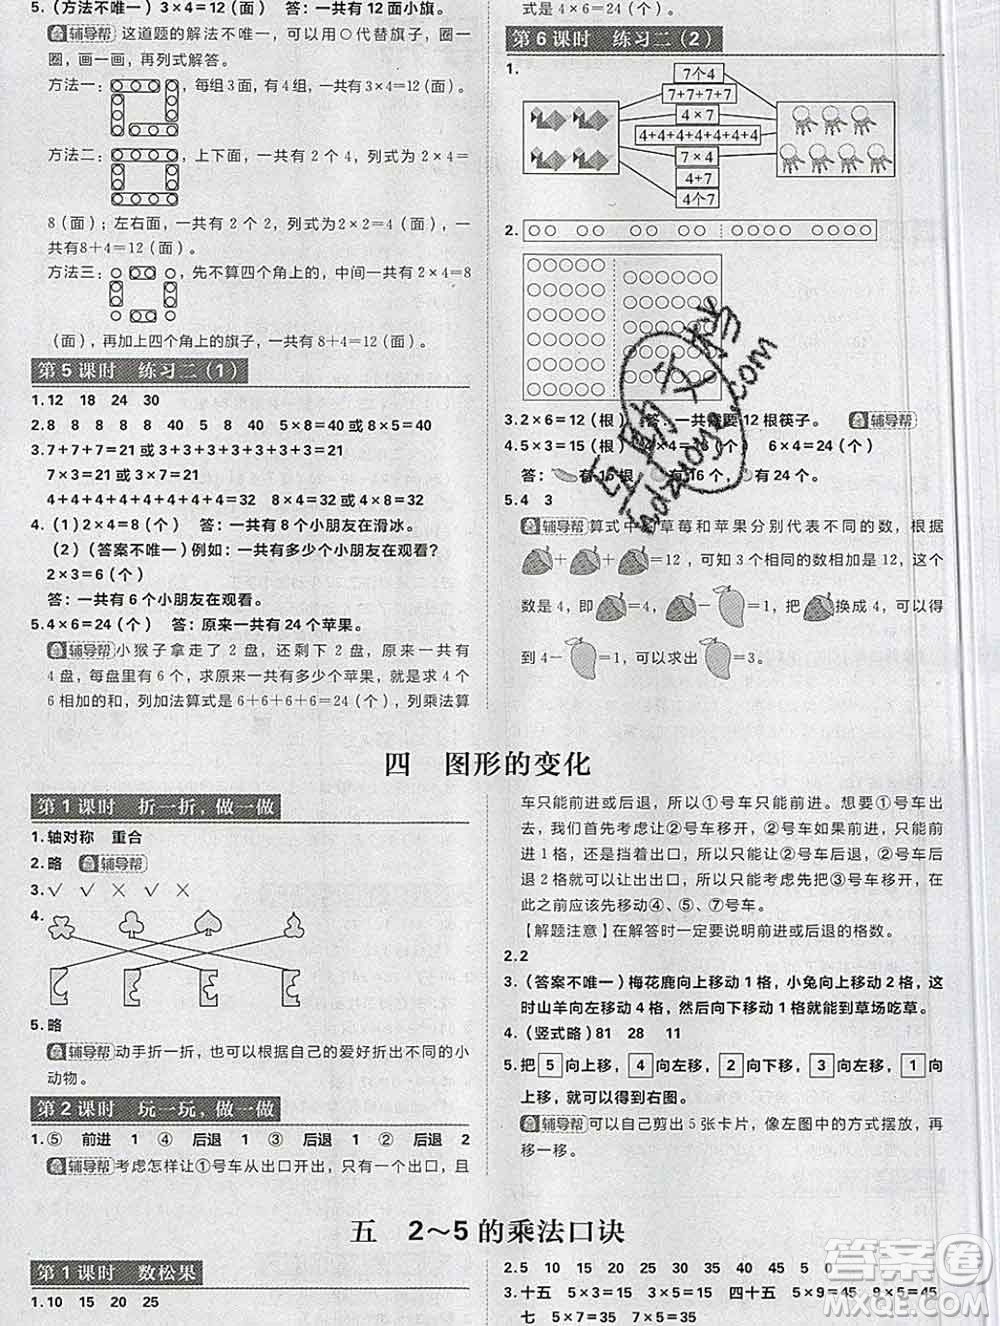 5.（方法不唯一）3×4=12（面） 答：一共有 12 面小旗。
辅导帮 这道题的解法不唯一，可以用○代替旗子，圈一
圈，画一画，再列式解答。
方法一： ，每组 3 面，有 4 组，列式为 3×4=12（面）
方法二： ，上下面，一共有 2 个 4，列式为 2×4=
8（面）；左右面，一共有 2 个 2，列式为 2×2=4（面），一
共有8+4=12（面）。
方法三： ，先不算四个角上的，中间一共有 2×4=8
（面），再加上四个角上的旗子，一共有 8+4=12（面）。
第 5 课时 练习二（1）
1.12 18 24 30
2.8 8 8 8 8 5 5×8=40 或 8×5=40
3.7+7+7=21 或 3+3+3+3+3+3+3=21
7×3=21 或 3×7=21
4+4+4+4+4+4+4+4=32 8×4=32 或 4×8=32
4.（1）2×4=8（个） 答：一共有 8 个小朋友在滑冰。
（2）（答案不唯一）例如：一共有多少个小朋友在观看？
2×3=6（个）
答：一共有 6 个小朋友在观看。
5.4×6=24（个） 答：原来一共有 24 个苹果。
辅导帮 小猴子拿走了 2 盘，还剩下 2 盘，原来一共有
4 盘，每盘里有 6 个，求原来一共有多少个苹果，就是求 4 个
6 相加的和，列加法算式是 6+6+6+6=24（个），列乘法算
式是 4×6=24（个）。
第 6 课时 练习二（2）
1.
7个4
7+7+7+7
4×7
4+4+4+4+4+4+4
7×4
4+7
4个7
2.
3.2×6=12（根） 答：一共需要 12 根筷子。 辅导帮
4.5×3=15（根） 4×4=16（个） 6×4=24（个）
答： 有 15 根， 有 16 个， 有 24 个。
5.4 3
辅导帮 算式中的草莓和苹果分别代表不同的数，根据
+ + =12，可知 3 个相同的数相加是 12，这个
数是 4，即 =4， - =1，把 换成 4，可以得
到 4- =1，可以求出 =3。
四 图形的变化
第 1 课时 折一折，做一做
1.轴对称 重合
2.略 辅导帮
3.√ √ × √ √
4.
5.略
辅导帮 动手折一折，也可以根据自己的爱好折出不同的小
动物。
第 2 课时 玩一玩，做一做
1.⑤ 前进 1 ④ 后退 1 ⑦ 后退 1 ② 后退 2
辅导帮 考虑怎样让①号车从出口开出，只有一个出口，且
车只能前进或后退，所以①号车只能前进。想要①号车出
去，我们首先考虑让②号车移开，②号车如果前进，只能前
进 1 格，还是挡着出口，所以只能考虑让②号车后退，后
退 2 格就可以让出出口，再考虑要想把②号车移开，在
此之前应该先移动④、⑤、⑦号车。
【解题注意】在解答时一定要说明前进或后退的格数。
2.2
3.（答案不唯一）梅花鹿向上移动 1 格，小兔向上移动 2 格，这
时山羊向左移动 4 格，然后向下移动 1 格就能到草场吃草。
4.（竖式略）81 28 11
5.把 5 向上移， 4 向左移， 2 向下移， 3 向左移， 1 向
上移，就能得到右图。
辅导帮 可以自己剪出 5 张卡片，像左图中的方式摆放，再
移一移。
五 2～5 的乘法口诀
第 1 课时 数松果
1.10 15 20 25
2.5 10 15 20 25 30 35 40 45 5 0
3.十五 5×3=15 3×5=15 四十五 5×9=45 9×5=45
七 5×7=35 7×5=35
答案圈
MXQE.COM